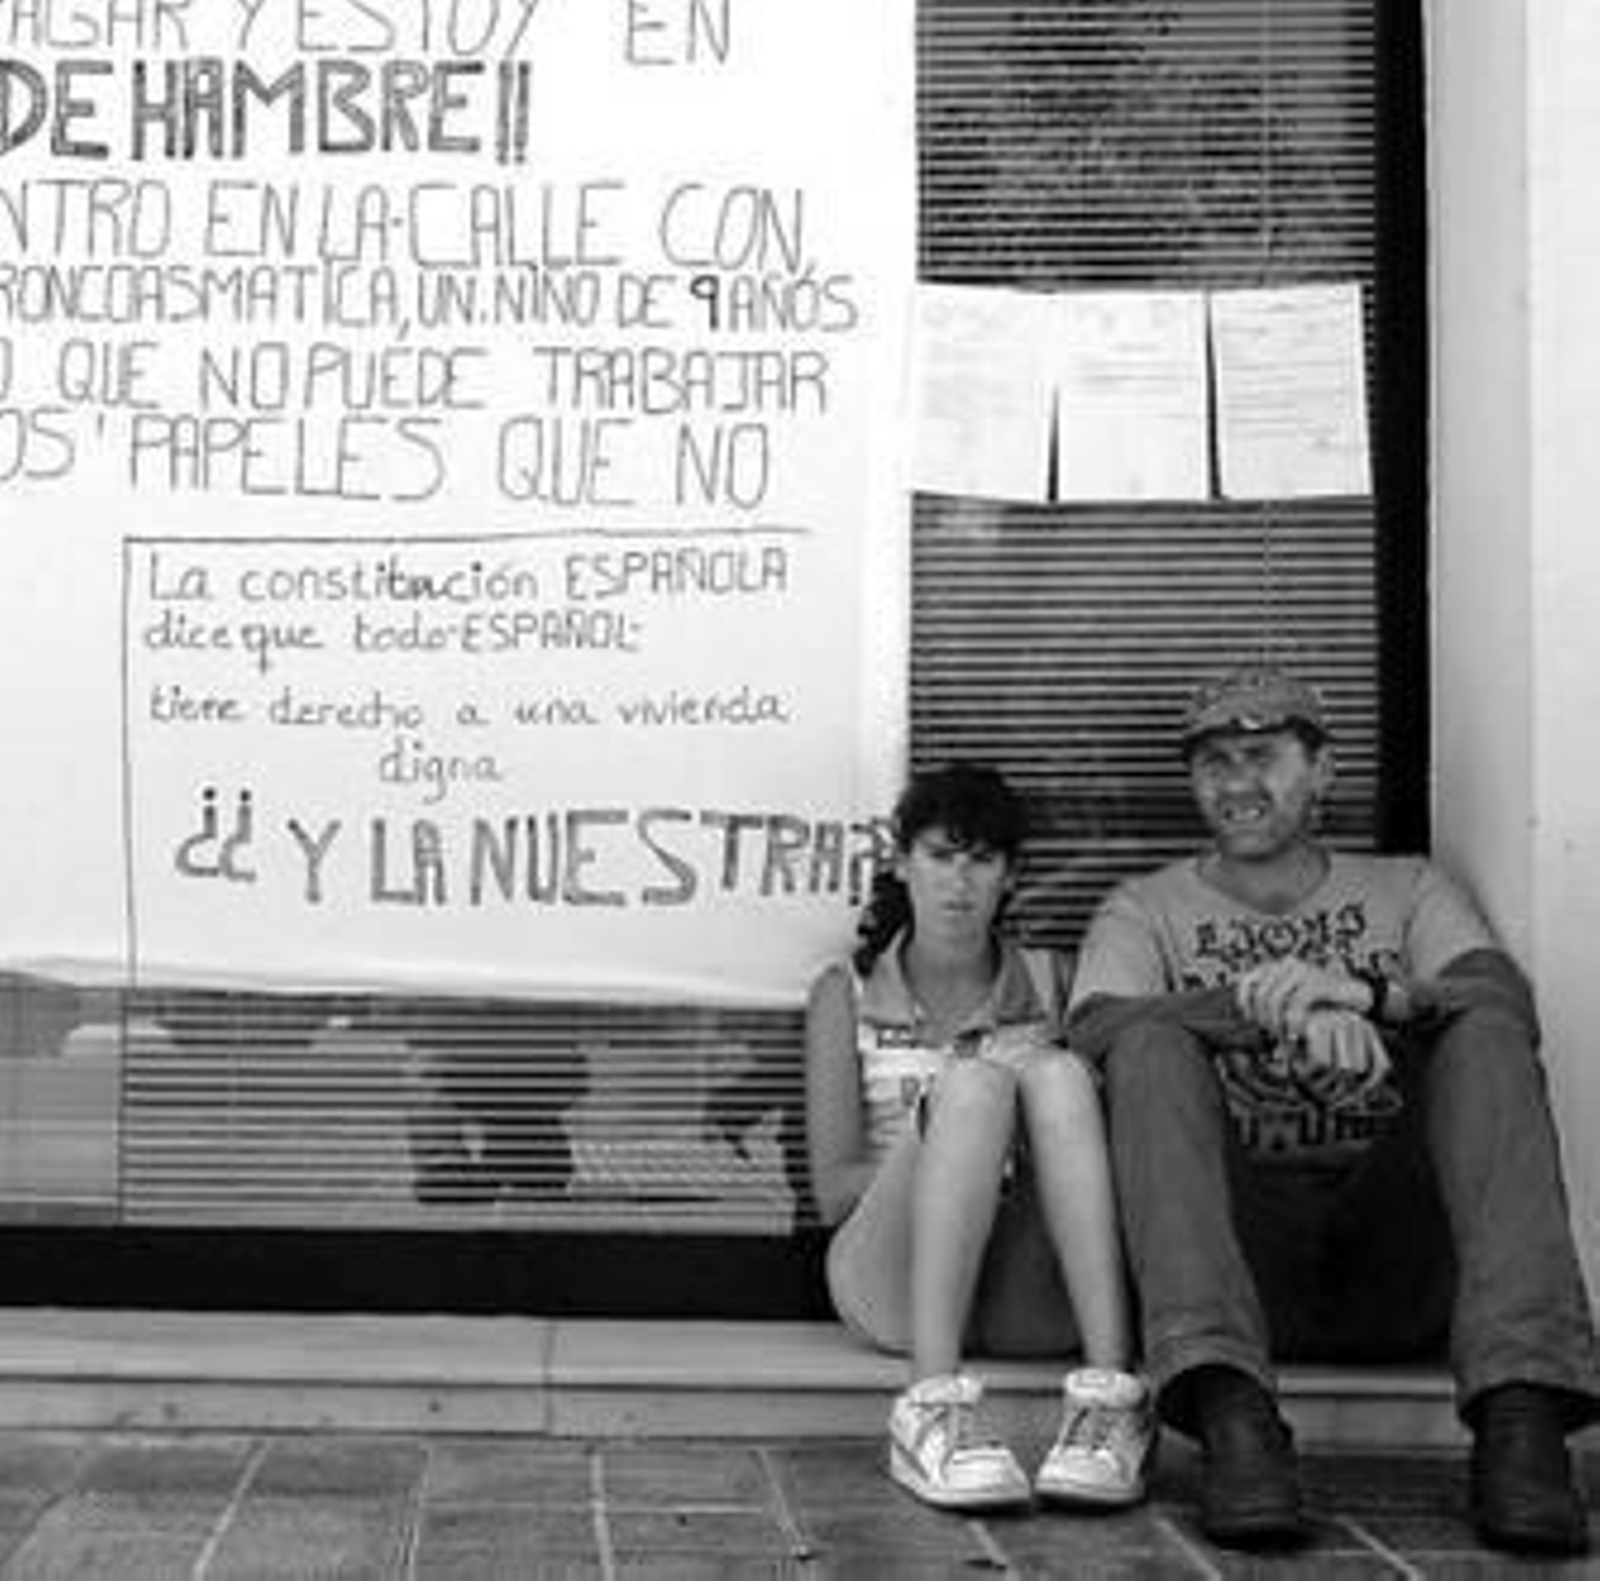 PAGAR Y ESTOY EN
DE HAMBRE!!
NTRO EN LA CALLE CON
RONCOASMATICA, UN NIÑO DE 9 AÑOS
O QUE NO PUEDE TRABAJAR
OS PAPELES QUE NO
La constitución ESPAÑOLA
dice que todo-ESPAÑOL-
tiene derecho a una vivienda
digna
¿¿ Y LA NUESTRA??